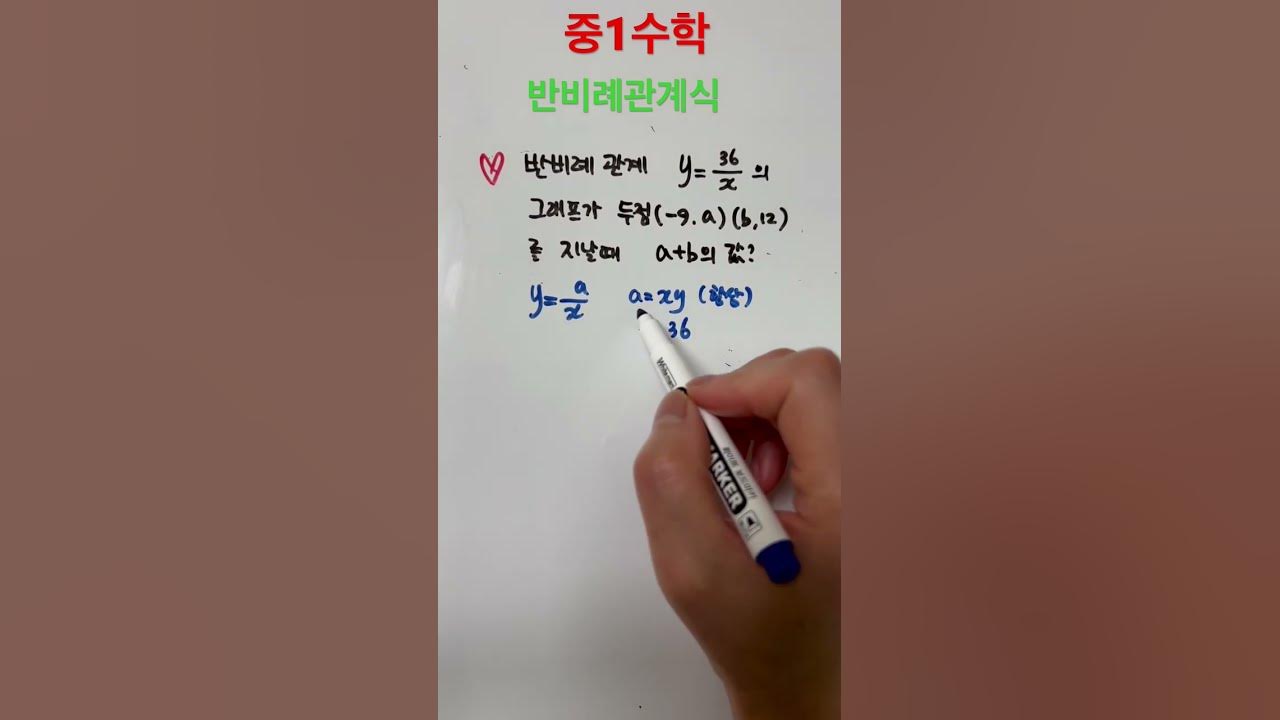 중1수학
반비례관계식
반비례 관계 y=36/x 의
그래프가 두점(-9, a)(b,12)
를 지날때 a+b의 값?
y=a/x a=xy (항상)
36
MARKER